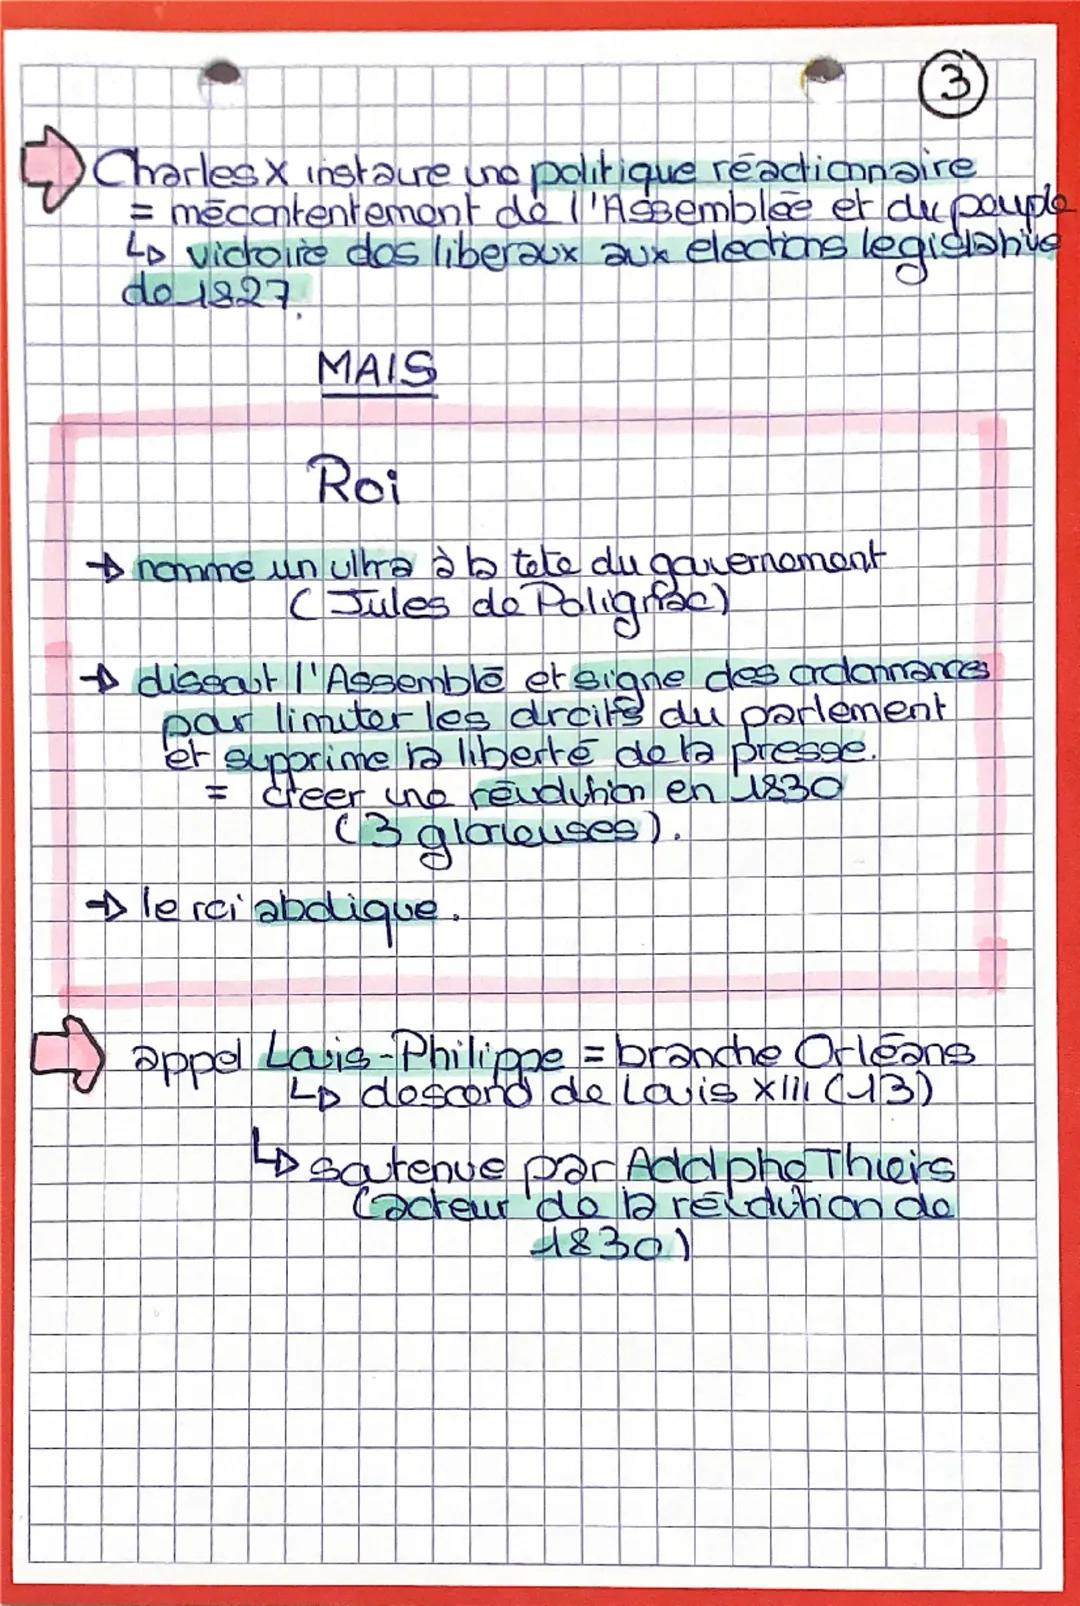 3
Charles X instaure une politique réactionnaire
= mécontentement de l'Assemblée et du peuple
↳ victoire des liberaux aux elections legislative
de 1827.
MAIS
Roi
→ nomme un ultra à la tete du gouvernement
(Jules de Polignac)
→ dissout l'Assemblé et signe des ordonnances
pour limiter les droits du parlement
et supprime la liberté de la presse.
= créer une révolution en 1830
(3 glorieuses).
→ le roi abdique.
appel Louis-Philippe = branche Orléans
↳ descend de Louis XIII (13)
↳ soutenue par Adolphe Thiers
(acteur de la révolution de
1830)